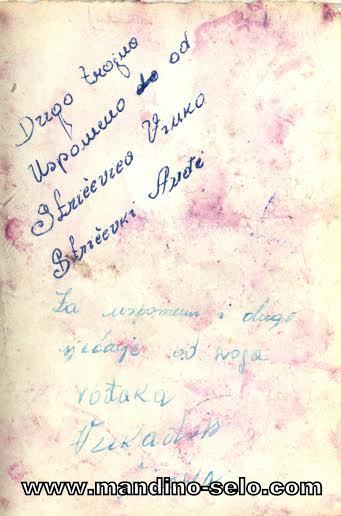 Drugo trajna
Uspomena do od
Stričevića Vinko
Stričevki Anđi
Za uspomenu i dugo
sjećanje od svoga
rođaka
Vukadin
www.mandino-selo.com